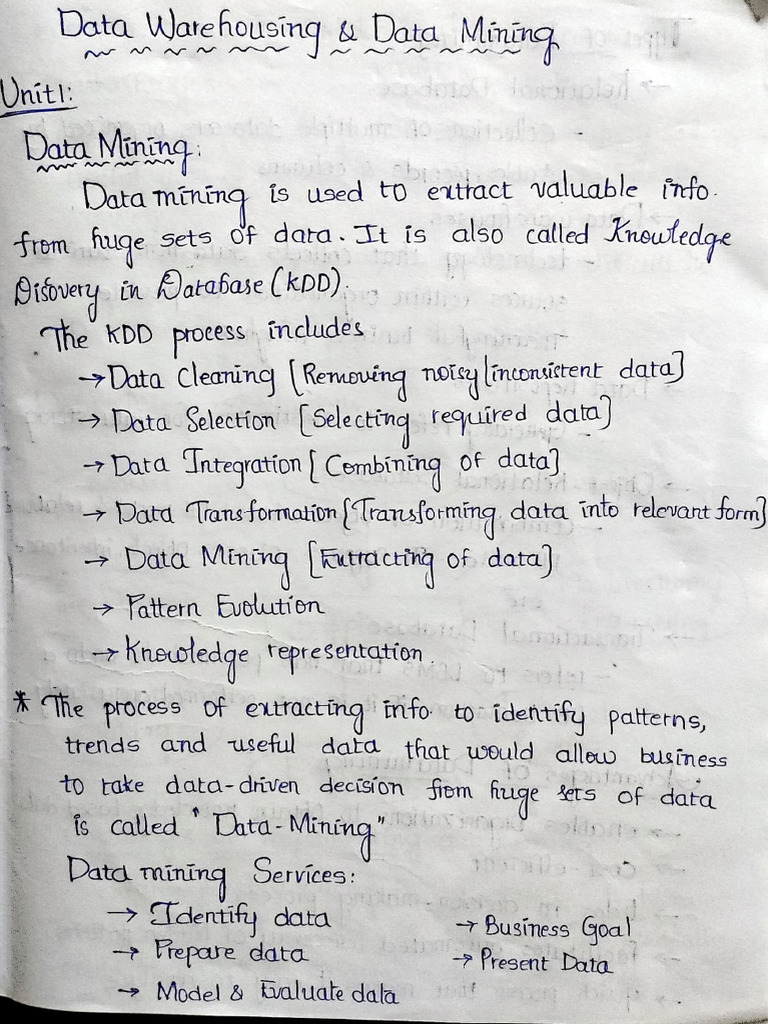 Data Warehousing & Data Mining
Unit1:
Data Mining:
Data mining is used to extract valuable info.
from huge sets of data. It is also called Knowledge
Disovery in Database (KDD).
The KDD process includes
→ Data Cleaning [Removing noisy/inconsistent data]
→ Data Selection [Selecting required data]
→ Data Integration [Combining of data]
→ Data Transformation [Transforming data into relevant form]
→ Data Mining [Extracting of data]
→ Pattern Evolution
→ Knowledge representation.
* The process of extracting info. to identify patterns,
trends and useful data that would allow business
to take data-driven decision from huge sets of data
is called "Data-Mining"
Data mining Services:
→ Identify data → Business Goal
→ Prepare data → Present Data
→ Model & Evaluate data